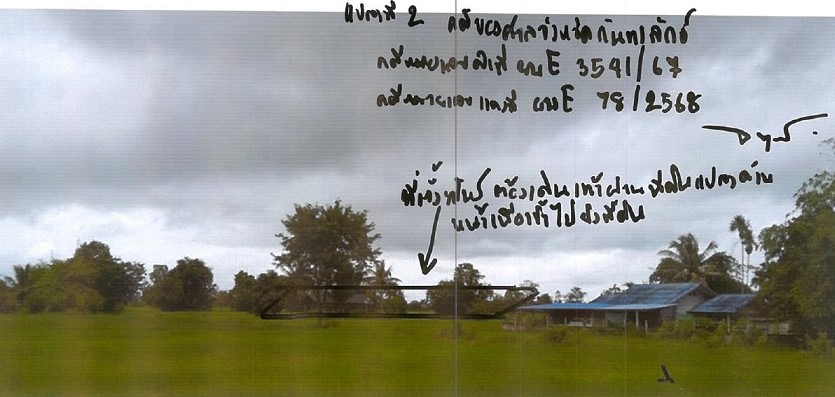 แปลงที่ 2 คดีของศาลจังหวัดกันทรลักษ์
คดีหมายเลขคดีที่ ผบE 3541/67
คดีหมายเลขแดงที่ ผบE 78/2568
ที่ตั้งทรัพย์ ต้องเดินเท้าผ่านที่ดินแปลงด้าน
หน้าเพื่อเข้าไปยังที่ดิน